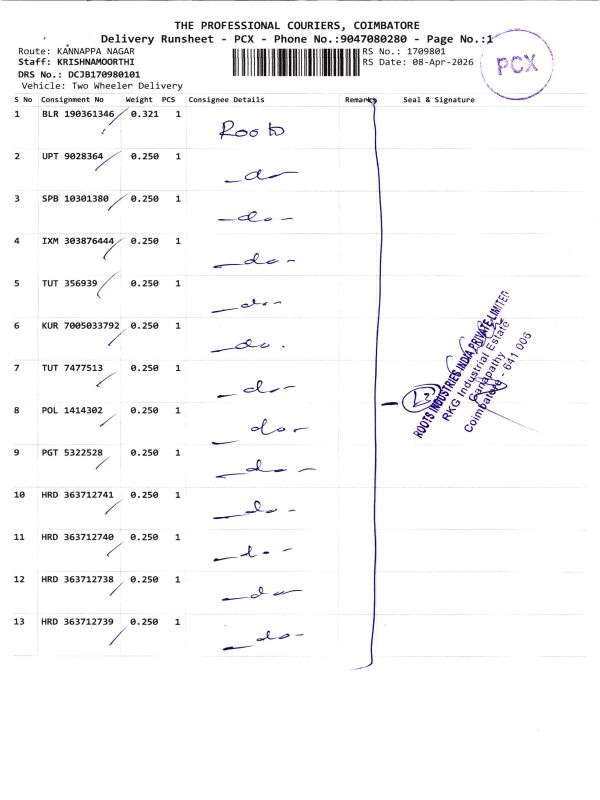 THE PROFESSIONAL COURIERS, COIMBATORE
Delivery Runsheet - PCX - Phone No.:9047080280 - Page No.:1
Route: KANNAPPA NAGAR RS No.: 1709801
Staff: KRISHNAMOORTHI RS Date: 08-Apr-2026
DRS No.: DCJB170980101
Vehicle: Two Wheeler Delivery
PCX
S No Consignment No Weight PCS Consignee Details Remarks Seal & Signature
1 BLR 190361346 0.321 1 Roots
2 UPT 9028364 0.250 1 -do-
3 SPB 10301380 0.250 1 -do-
4 IXM 303876444 0.250 1 -do-
5 TUT 356939 0.250 1 -do-
6 KUR 7005033792 0.250 1 -do-
7 TUT 7477513 0.250 1 -do-
8 POL 1414302 0.250 1 -do-
9 PGT 5322528 0.250 1 -do-
10 HRD 363712741 0.250 1 -do-
11 HRD 363712740 0.250 1 -do-
12 HRD 363712738 0.250 1 -do-
13 HRD 363712739 0.250 1 -do-
ROOTS INDUSTRIES INDIA PRIVATE LIMITED
RKG Industrial Estate
Ganapathy
Coimbatore - 641 006